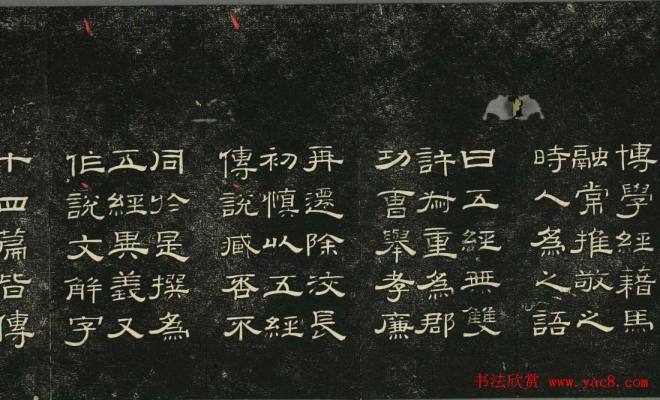 博學經籍馬
融常推敬之
時人為之語
曰五經無雙
許叔重為郡
功曹舉孝廉
再遷除洨長
初慎以五經
傳說臧否不
同於是撰為
五經異義又
作說文解字
十四篇皆傳
书法欣赏 www.yac8.com